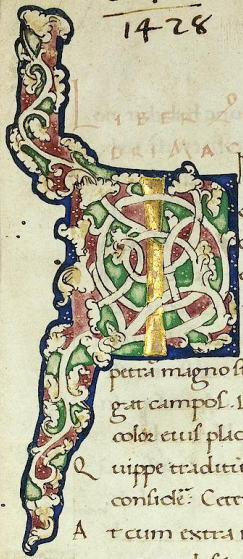 1428
LIBER
PRIMA
I
petra magno st
gat campos. S
color eius plac
Q uippe traditu
considē. Cete
A t cum extra